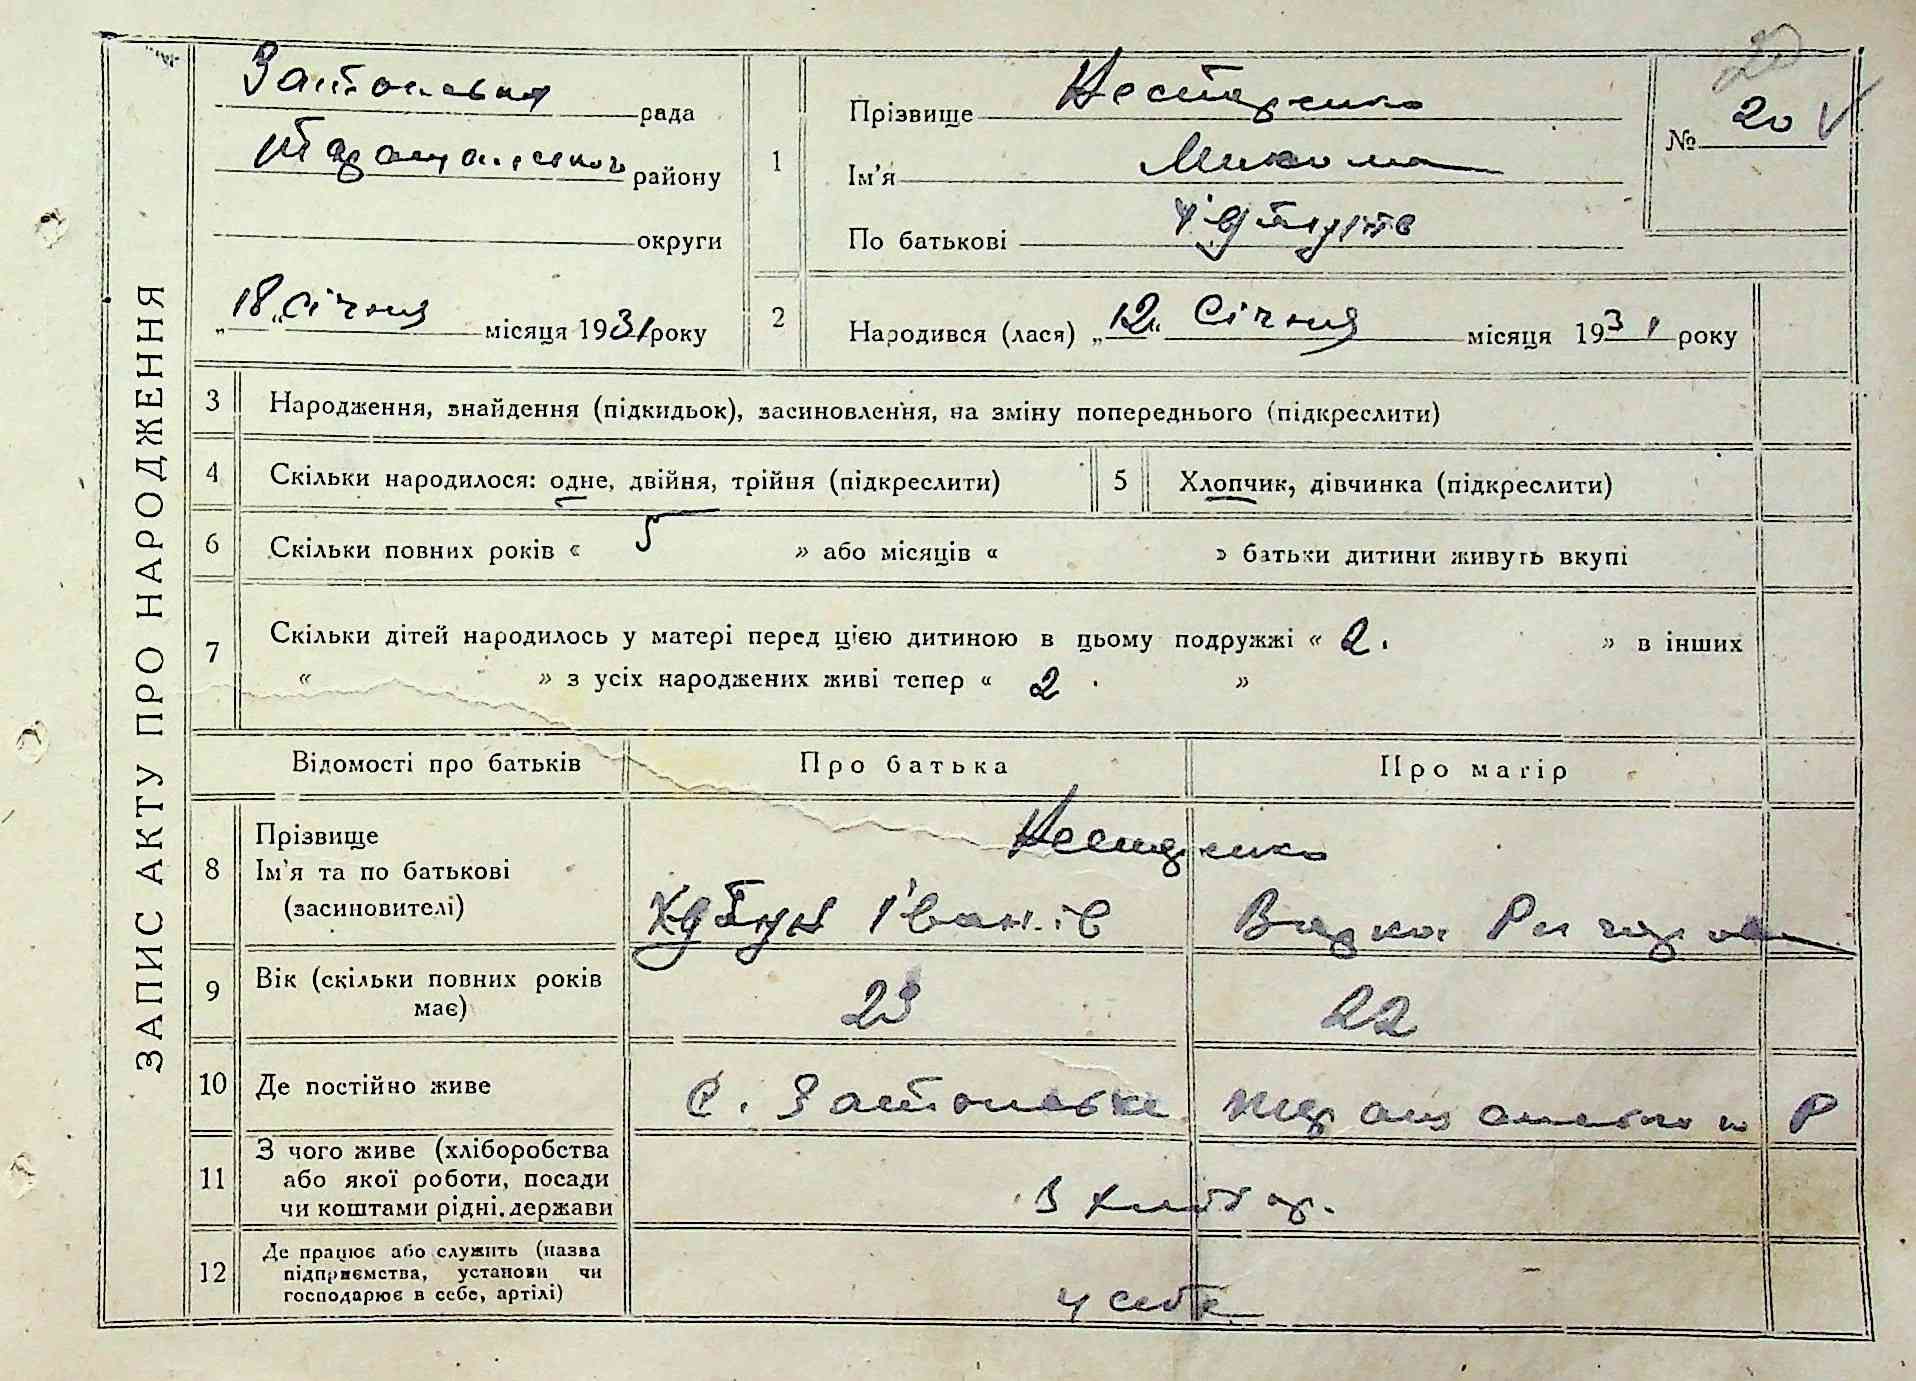 ЗАПИС АКТУ ПРО НАРОДЖЕННЯ
рада
району
округи
„18„ Січня місяця 1931 року
1
Прізвище Нестеренко
Ім'я Микола
По батькові
№ 20
20
2
Народився (лася) „12„ Січня місяця 1931 року
3 Народження, знайдення (підкидьок), засиновлення, на зміну попереднього (підкреслити)
4 Скільки народилося: одне, двійня, трійня (підкреслити)
5 Хлопчик, дівчинка (підкреслити)
6 Скільки повних років « 5 » або місяців « » батьки дитини живуть вкупі
7 Скільки дітей народилось у матері перед цією дитиною в цьому подружжі « 2. » в інших
« » з усіх народжених живі тепер « 2. »
Відомості про батьків
Про батька
Про матір
8 Прізвище
Ім'я та по батькові
(засиновителі)
Нестеренко
Іванів
Варка
9 Вік (скільки повних років
має)
23
22
10 Де постійно живе
с.
Р
11 З чого живе (хліборобства
або якої роботи, посади
чи коштами рідні, держави
З хлібор.
12 Де працює або служить (назва
підприємства, установи чи
господарює в себе, артілі)
у себе